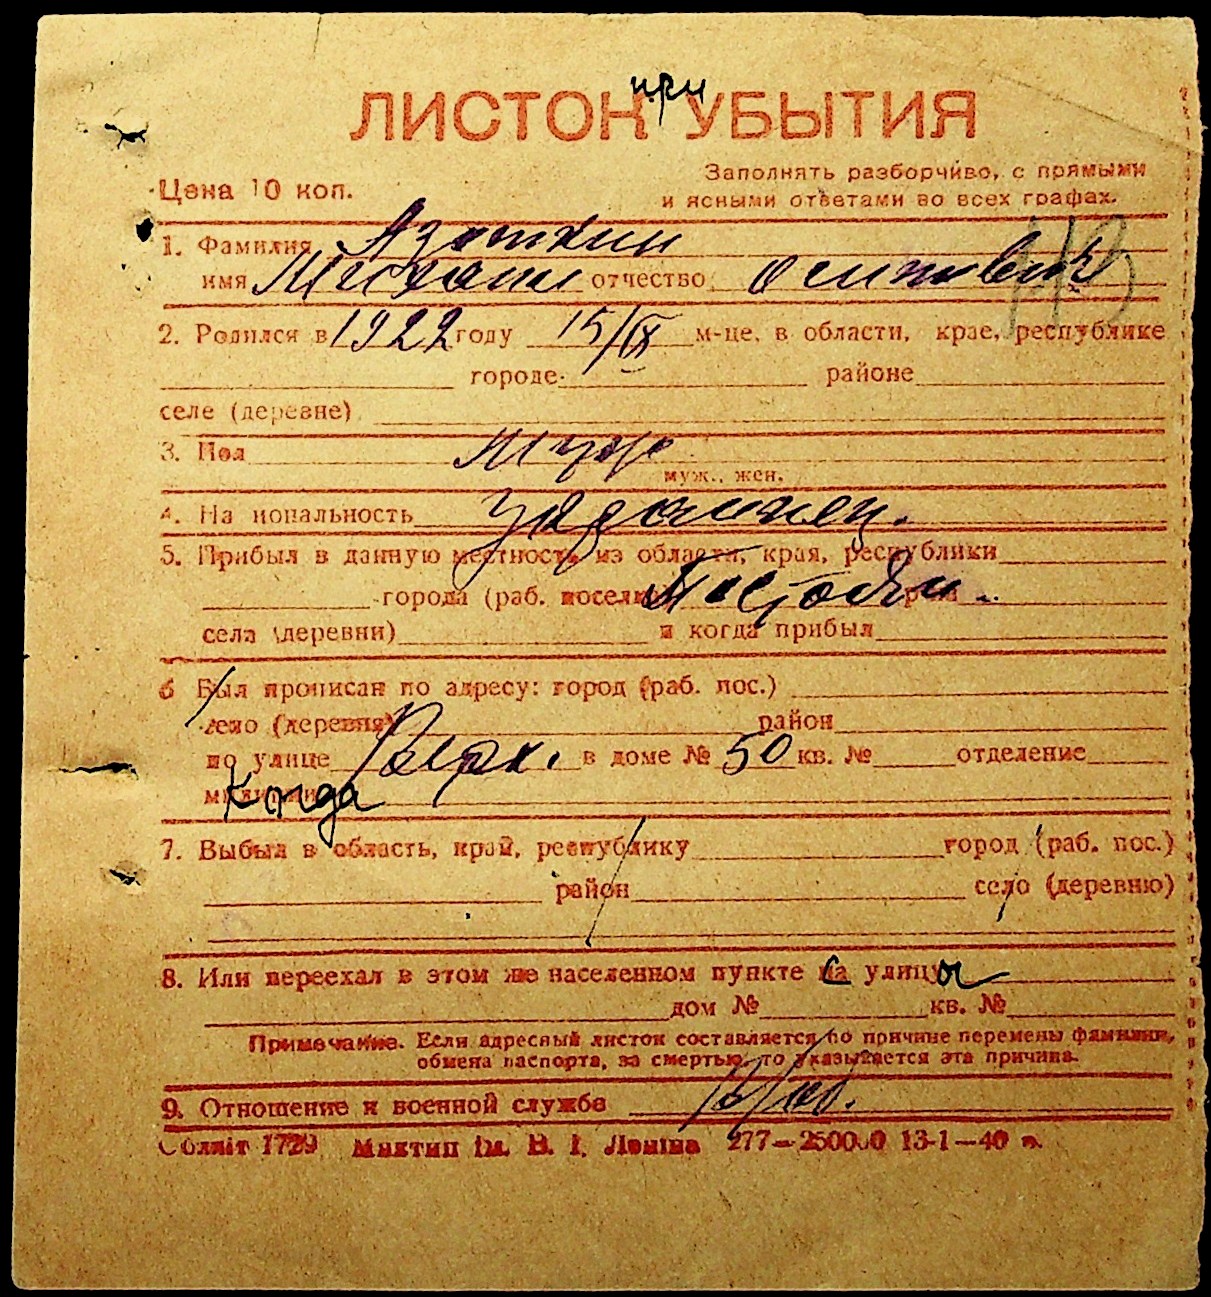 при
ЛИСТОК УБЫТИЯ
Цена 10 коп.
Заполнять разборчиво, с прямыми
и ясными ответами во всех графах.
1. Фамилия
имя Михаил отчество Осипович
2. Родился в 1922 году 15/IX м-це, в области, крае, республике
городе районе
селе (деревне)
3. Пол муж
муж., жен.
4. Национальность украинец.
5. Прибыл в данную местность из области, края, республики
города (раб. поселка)
села (деревни) и когда прибыл
6 Был прописан по адресу: город (раб. пос.)
село (деревня) район
по улице в доме № 50 кв. № отделение
милиции Когда
7. Выбыл в область, край, республику город (раб. пос.)
район село (деревню)
8. Или переехал в этом же населенном пункте с улицы
дом № кв. №
Примечание. Если адресный листок составляется по причине перемены фамилии,
обмена паспорта, за смертью, то указывается эта причина.
9. Отношение к военной службе
Обліт 1729 Миктип ім. В. І. Леніна 277—250000 13-1—40 р.